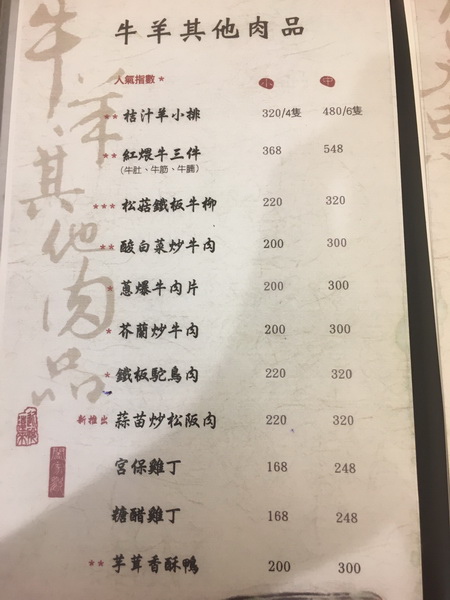 牛羊其他肉品
牛羊其他肉品
人氣指數★ 小 中
★★ 桔汁羊小排 320/4隻 480/6隻
★★ 紅煨牛三件 368 548
(牛肚、牛筋、牛腩)
★★★ 松菇鐵板牛柳 220 320
★★ 酸白菜炒牛肉 200 300
★ 蔥爆牛肉片 200 300
★ 芥蘭炒牛肉 200 300
★ 鐵板駝鳥肉 220 320
新推出 蒜苗炒松阪肉 220 320
宮保雞丁 168 248
糖醋雞丁 168 248
★★ 芋茸香酥鴨 200 300